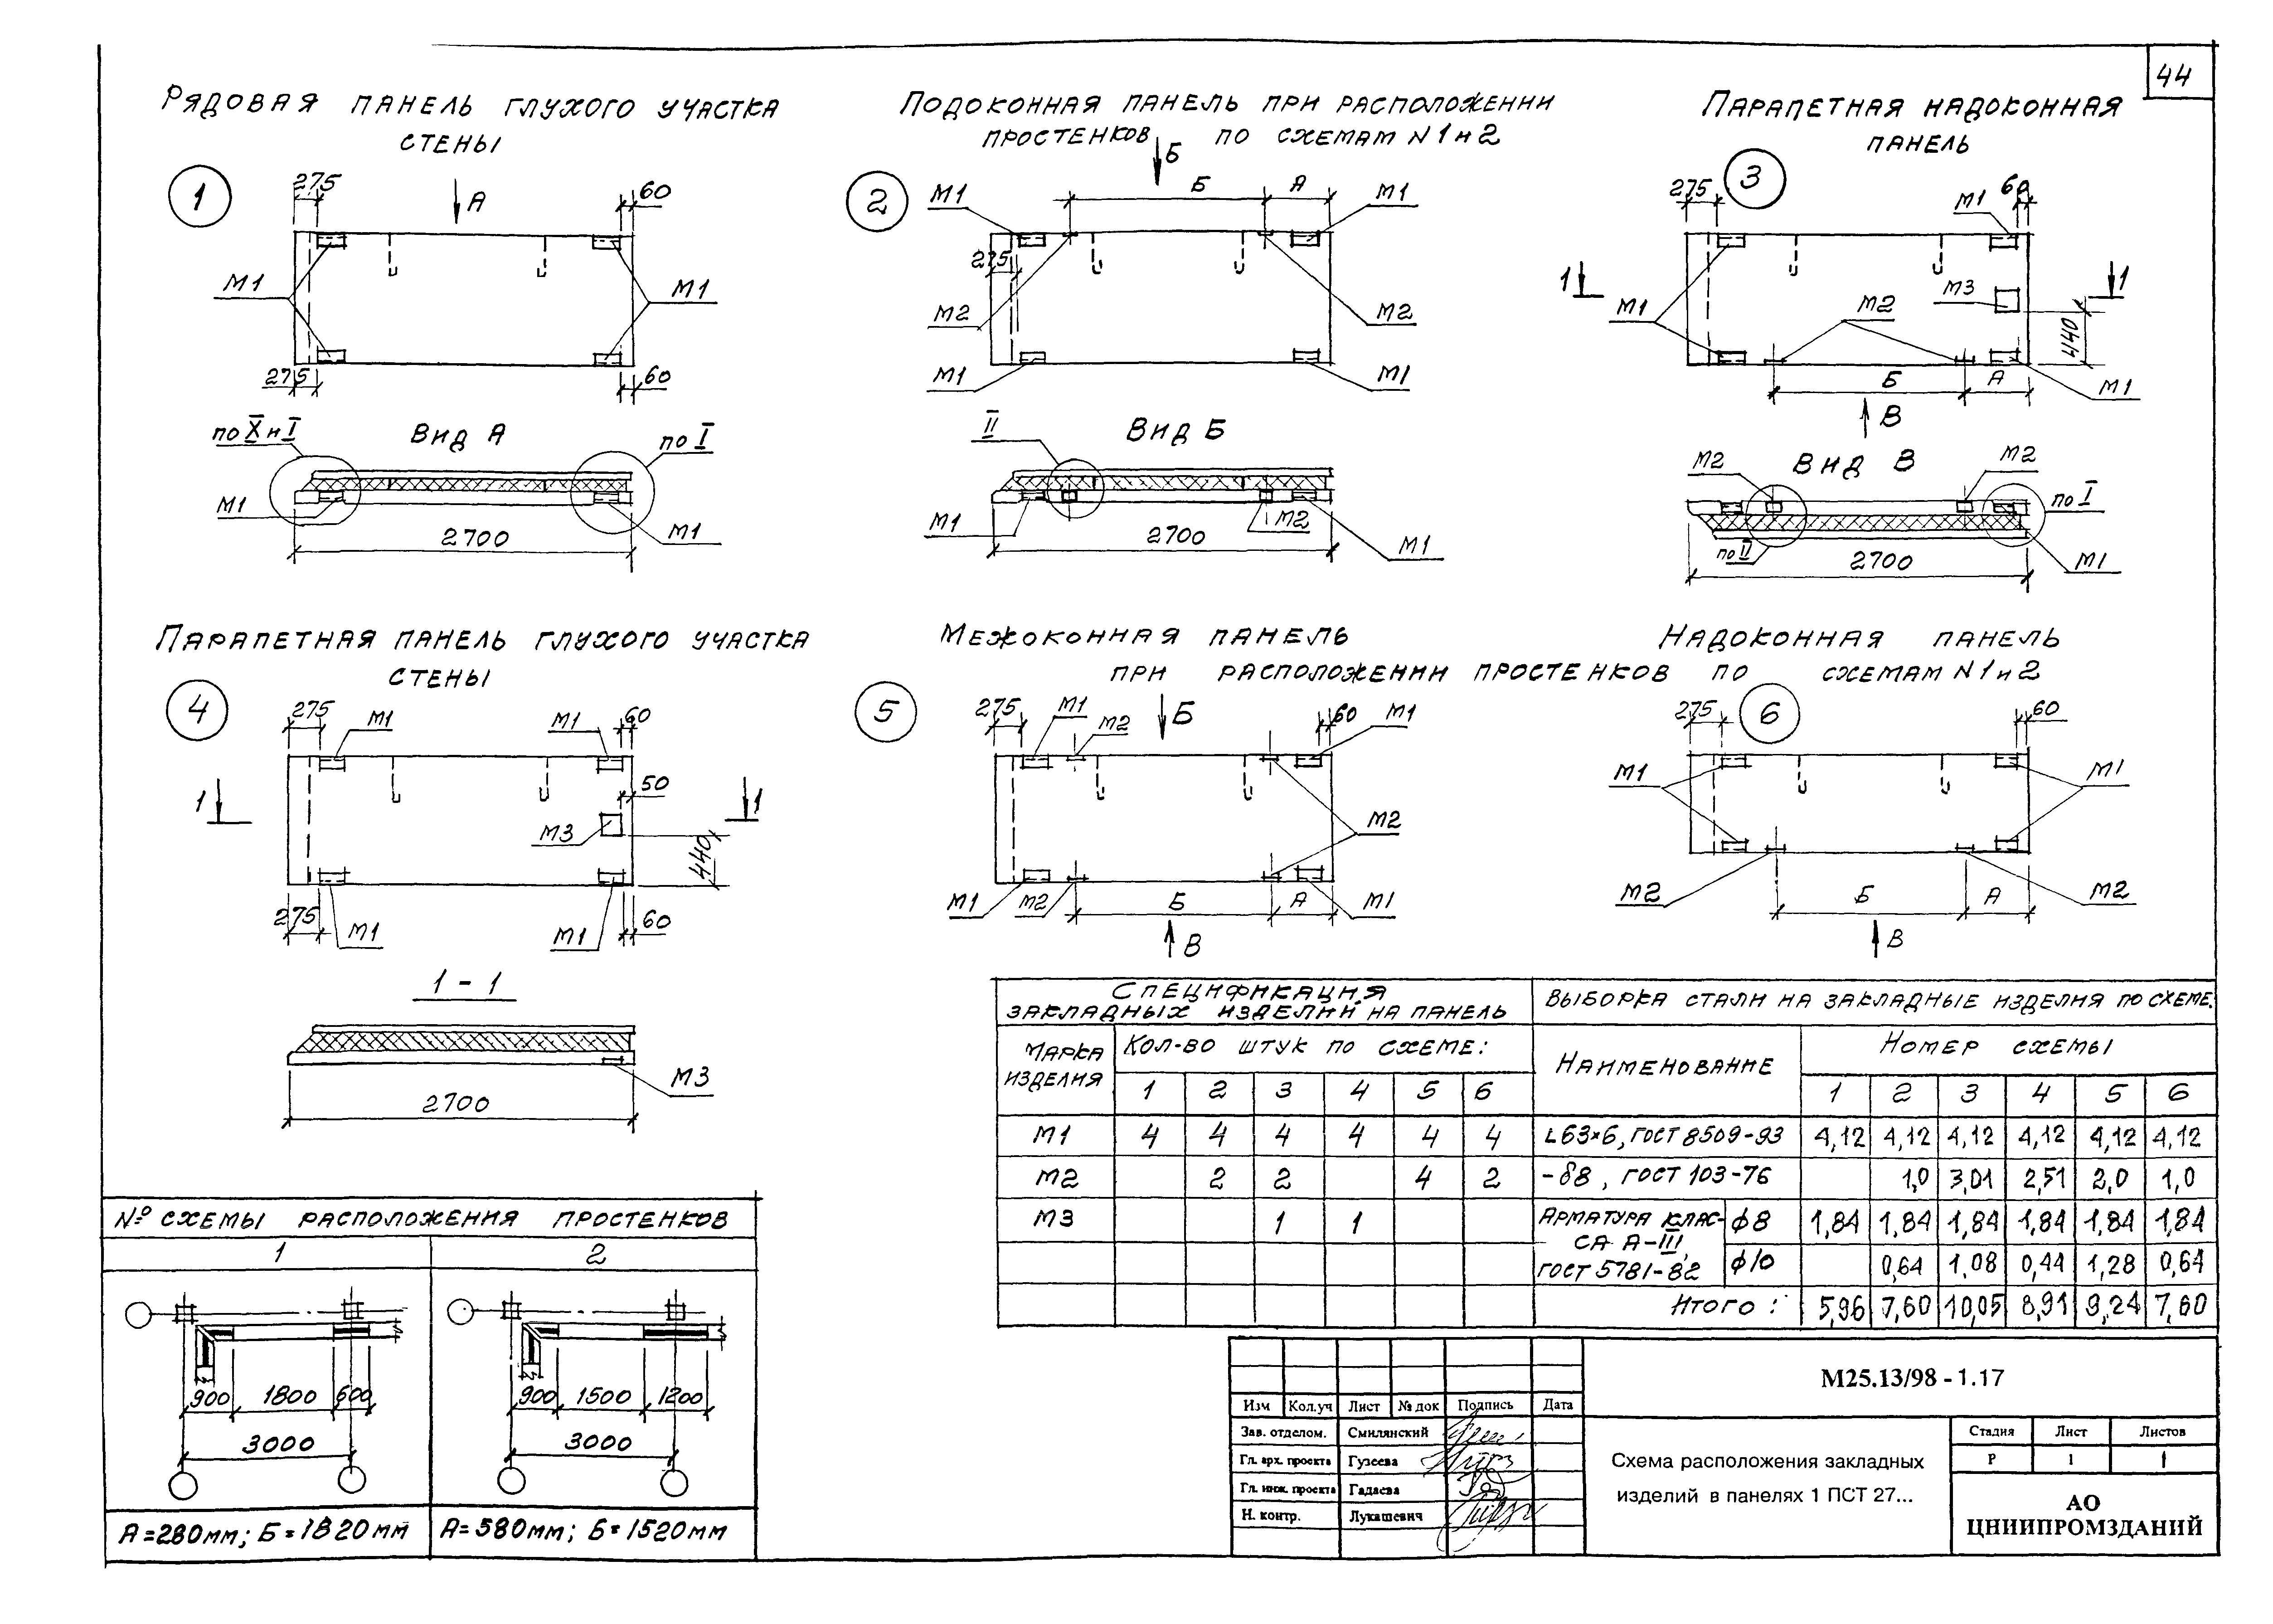 44
Рядовая панель глухого участка
стены
1
275
А
60
М1
М1
275
60
по X и I
Вид А
по I
М1
М1
2700
Подоконная панель при расположении
простенков по схемам N 1 и 2
Б
2
М1
Б
А
М1
275
М2
М2
М1
М1
II
Вид Б
М1
М2
М1
2700
Парапетная надоконная
панель
3
275
60
М1
1
1
М3
М2
М1
440
Б
А
М1
В
М2
Вид В
М2
по I
по II
М1
2700
Парапетная панель глухого участка
стены
4
275
М1
М1
60
50
1
1
М3
440
275
М1
М1
60
1 - 1
М3
2700
Межоконная панель
при расположении простенков по схемам N 1 и 2
5
275
М1
М2
Б
60
М1
М2
М1
М2
Б
А
М1
В
Надоконная панель
6
275
60
М1
М1
М2
Б
А
М2
В
Спецификация
закладных изделий на панель
Марка
изделия
Кол-во штук по схеме:
1 2 3 4 5 6
М1 4 4 4 4 4 4
М2 2 2 4 2
М3 1 1
Выборка стали на закладные изделия по схеме.
Наименование
Номер схемы
1 2 3 4 5 6
L 63×6, ГОСТ 8509-93 4,12 4,12 4,12 4,12 4,12 4,12
-δ8, ГОСТ 103-76 1,0 3,01 2,51 2,0 1,0
Арматура клас-
са А-III,
ГОСТ 5781-82
ф8 1,84 1,84 1,84 1,84 1,84 1,84
ф10 0,64 1,08 0,44 1,28 0,64
Итого: 5,96 7,60 10,05 8,91 9,24 7,60
№ схемы расположения простенков
1 2
900 1800 600
3000
900 1500 1200
3000
А=280мм; Б=1820мм
А=580мм; Б=1520мм
М25.13/98 - 1.17
Изм Кол.уч Лист № док Подпись Дата
Зав. отделом. Смилянский
Гл. арх. проекта Гузеева
Гл. инж. проекта Гадаева
Н. контр. Лукашевич
Схема расположения закладных
изделий в панелях 1 ПСТ 27...
Стадия Лист Листов
Р 1 1
АО
ЦНИИПРОМЗДАНИЙ